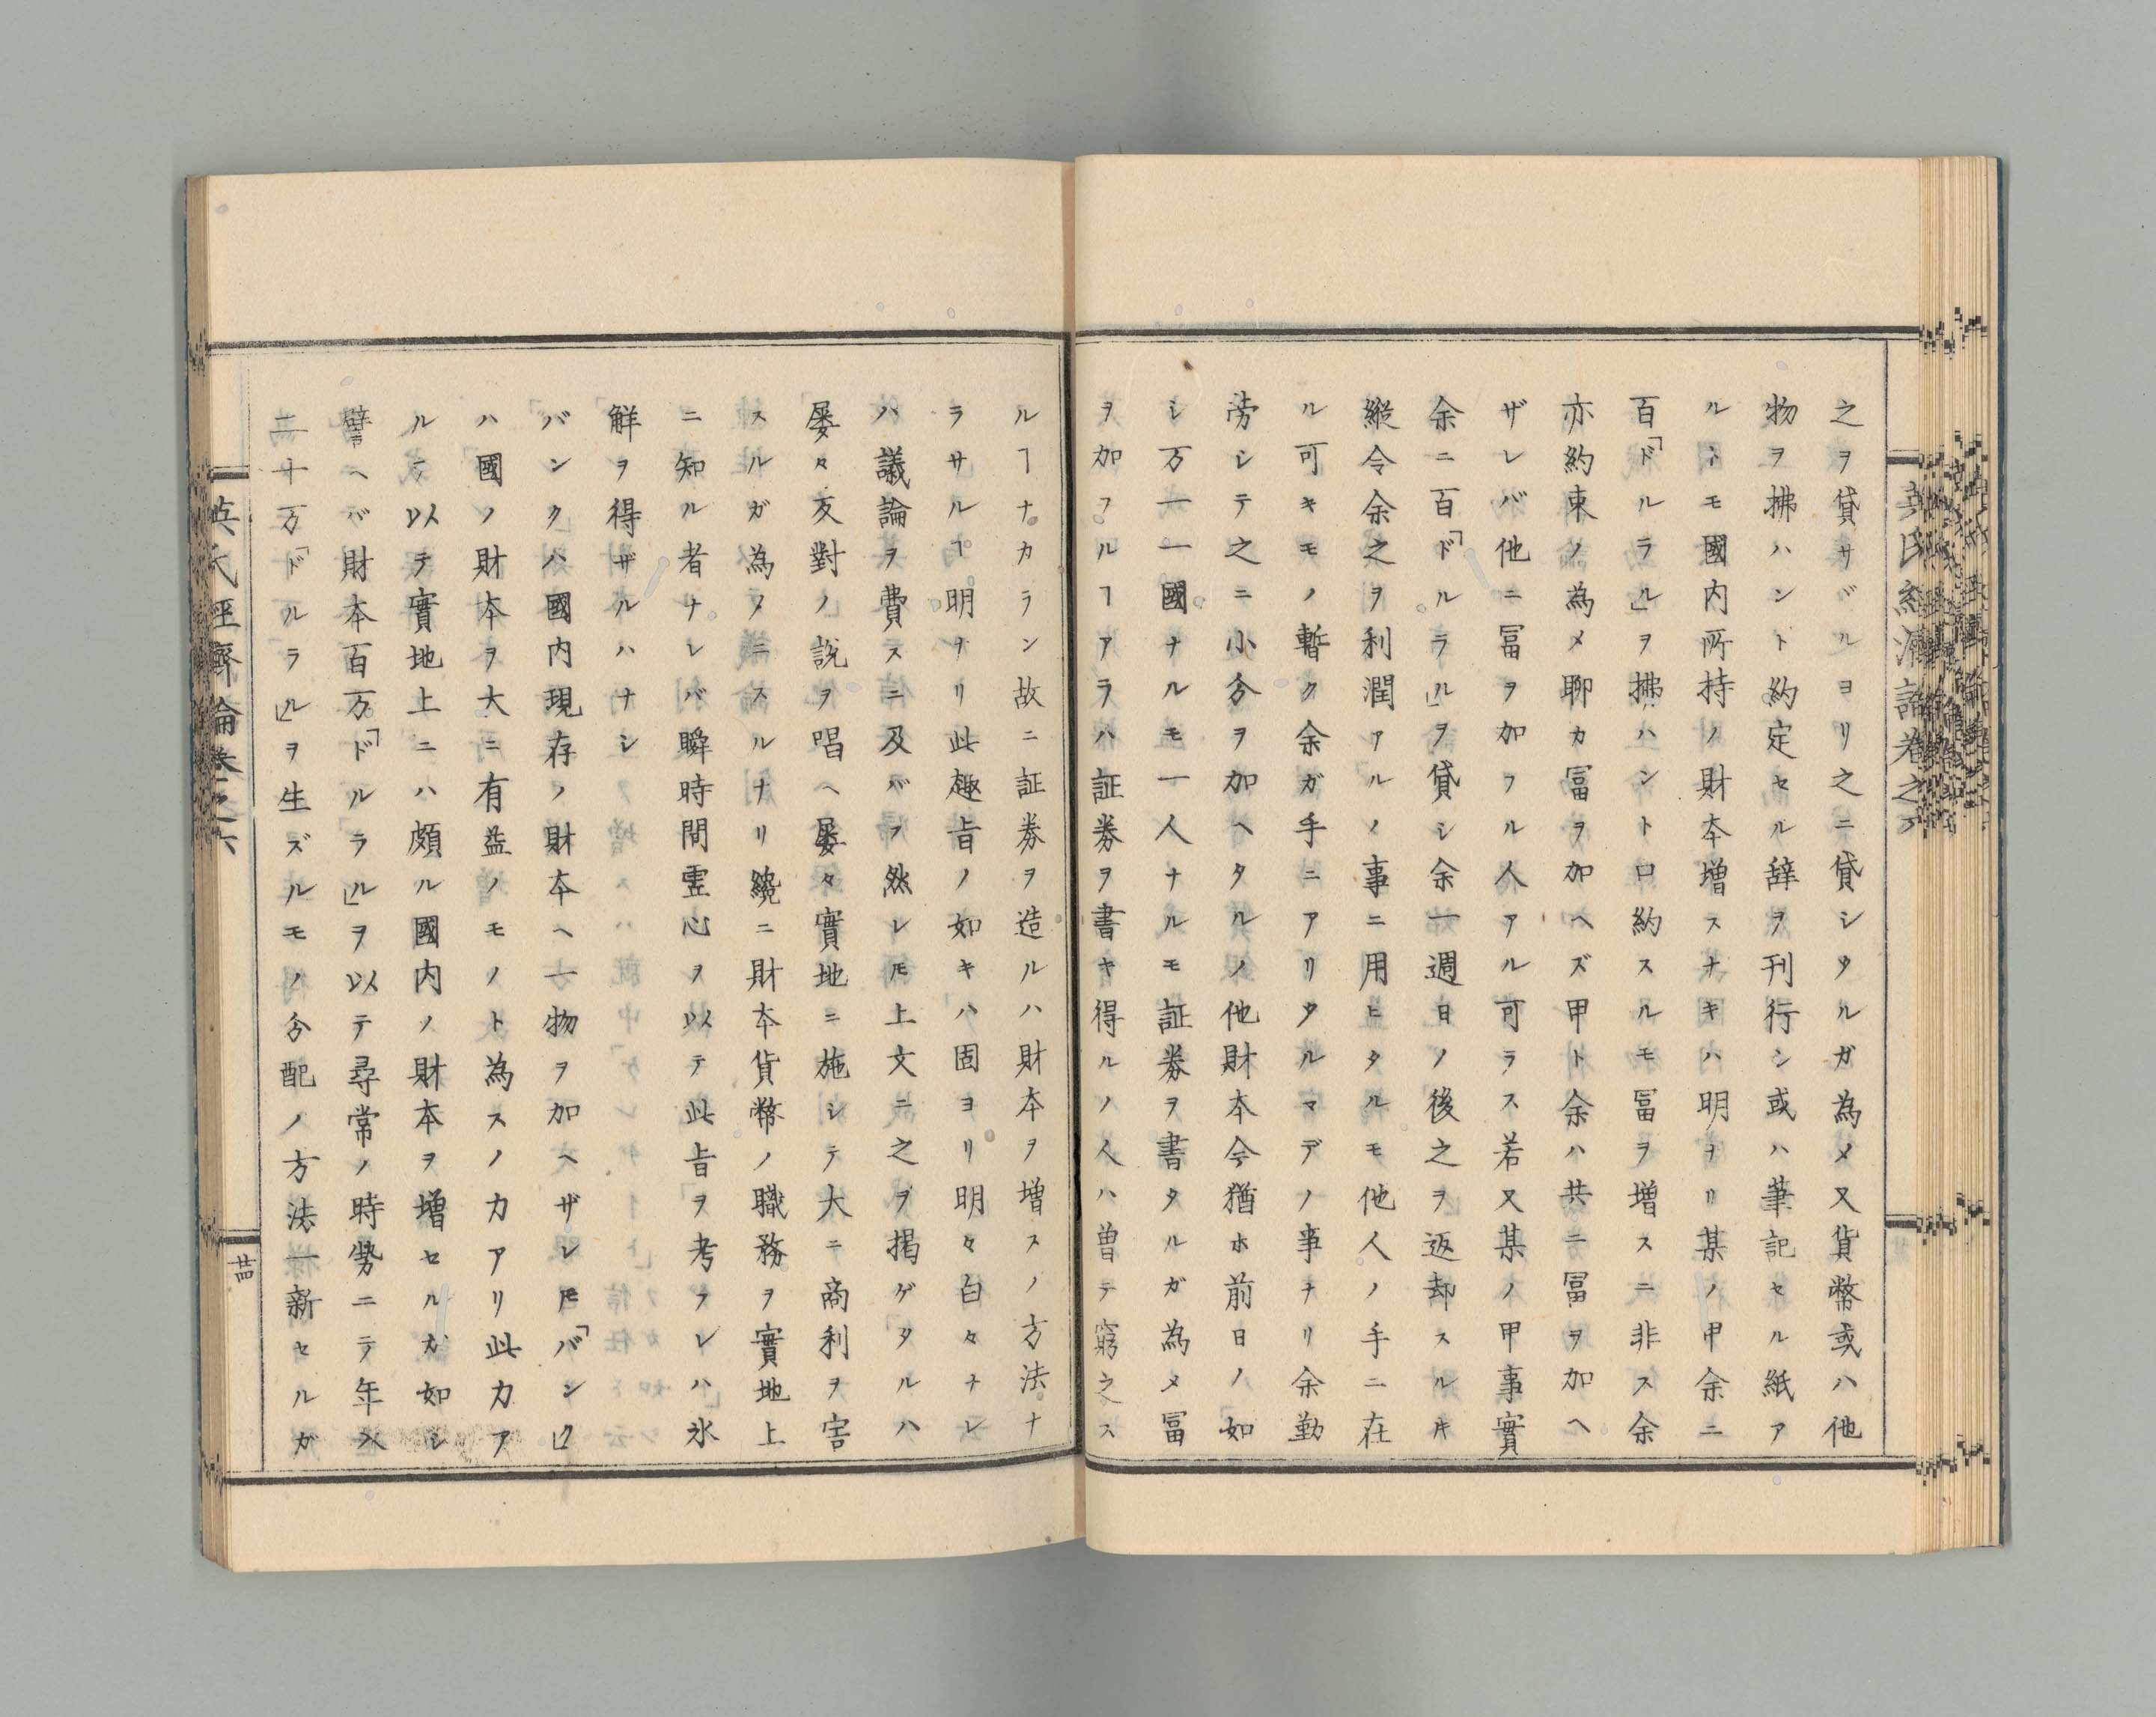 之ヲ貸サバルヨリ之ニ貸シタルガ為メ又貨幣或ハ他
物ヲ拂ハント約定セル辞ヲ刊行シ或ハ筆記セル紙ア
ルトモ國内所持ノ財本増スナキハ明ナリ某ノ甲余ニ
百「ドルラル」ヲ拂ハント口約スルモ冨ヲ増スニ非ス余
亦約束ノ為メ聊カ冨ヲ加ヘズ甲ト余ハ共ニ冨ヲ加ヘ
ザレバ他ニ冨ヲ加フル人アル可ラス若又某ノ甲事實
余ニ百「ドルラル」ヲ貸シ余一週日ノ後之ヲ返却スルキ
縦令余之ヲ利潤アルノ事ニ用ヒタルモ他人ノ手ニ在
ル可キモノ暫ク余ガ手ニアリタルマデノ事ナリ余勤
勞シテ之ニ小分ヲ加ヘタルノ他財本今猶ホ前日ノ如
シ万一一國ナルモ一人ナルモ証券ヲ書タルガ為メ冨
ヲ加フルヿアラハ証券ヲ書キ得ルノ人ハ曽テ窮之ス
ルヿナカラン故ニ証券ヲ造ルハ財本ヲ増スノ方法ナ
ラサルヿ明ナリ此趣旨ノ如キハ固ヨリ明々白々ナレ
ハ議論ヲ費スニ及バヲ然レ𪜈上文ニ之ヲ掲ゲタルハ
屡々友對ノ説ヲ唱ヘ屡々實地ニ施シテ大ニ商利ヲ害
スルガ為メニスルナリ纔ニ財本貨幣ノ職務ヲ實地上
ニ知ル者ナレバ瞬時間霊心ヲ以テ此旨ヲ考フレハ氷
解ヲ得ザルハナシ
バンクハ國内現存ノ財本ヘ一物ヲ加ヘザレ𪜈「バンク」
ハ國ノ財本ヲ大ニ有益ノモノト為スノカアリ此カア
ルテ以テ實地上ニハ頗ル國内ノ財本ヲ増セルガ如シ
譬ヘバ財本百万「ドルラル」ヲ以テ尋常ノ時勢ニテ年入
二十万「ドルラル」ヲ生ズルモノ分配ノ方法一新セルガ
英氏經濟論卷之六
廿四